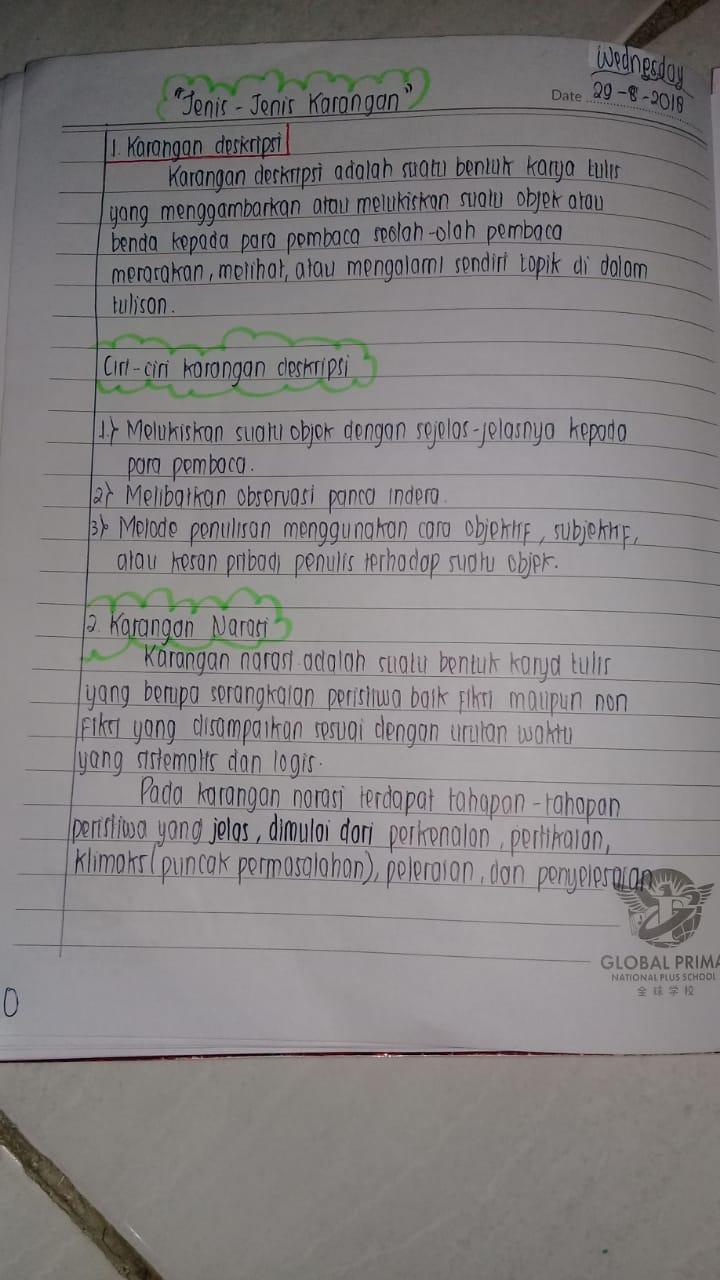 Wednesday
"Jenis - Jenis Karangan"
Date 29-8-2018
1. Karangan deskripsi
Karangan deskripsi adalah suatu bentuk karya tulis
yang menggambarkan atau melukiskan suatu objek atau
benda kepada para pembaca seolah-olah pembaca
merasakan, melihat, atau mengalami sendiri topik di dalam
tulisan.
Ciri-ciri karangan deskripsi
1.) Melukiskan suatu objek dengan sejelas-jelasnya kepada
para pembaca.
2) Melibatkan observasi panca indera.
3) Metode penulisan menggunakan cara objektif, subjektif,
atau kesan pribadi penulis terhadap suatu objek.
2. Karangan Narasi
Karangan narasi adalah suatu bentuk karya tulis
yang berupa serangkaian peristiwa baik fiksi maupun non
fiksi yang disampaikan sesuai dengan urutan waktu
yang sistematis dan logis.
Pada karangan narasi terdapat tahapan-tahapan
peristiwa yang jelas, dimulai dari perkenalan, pertikaian,
klimaks (puncak permasalahan), peleraian, dan penyelesaian
GLOBAL PRIMA
NATIONAL PLUS SCHOOL
全球学校
0